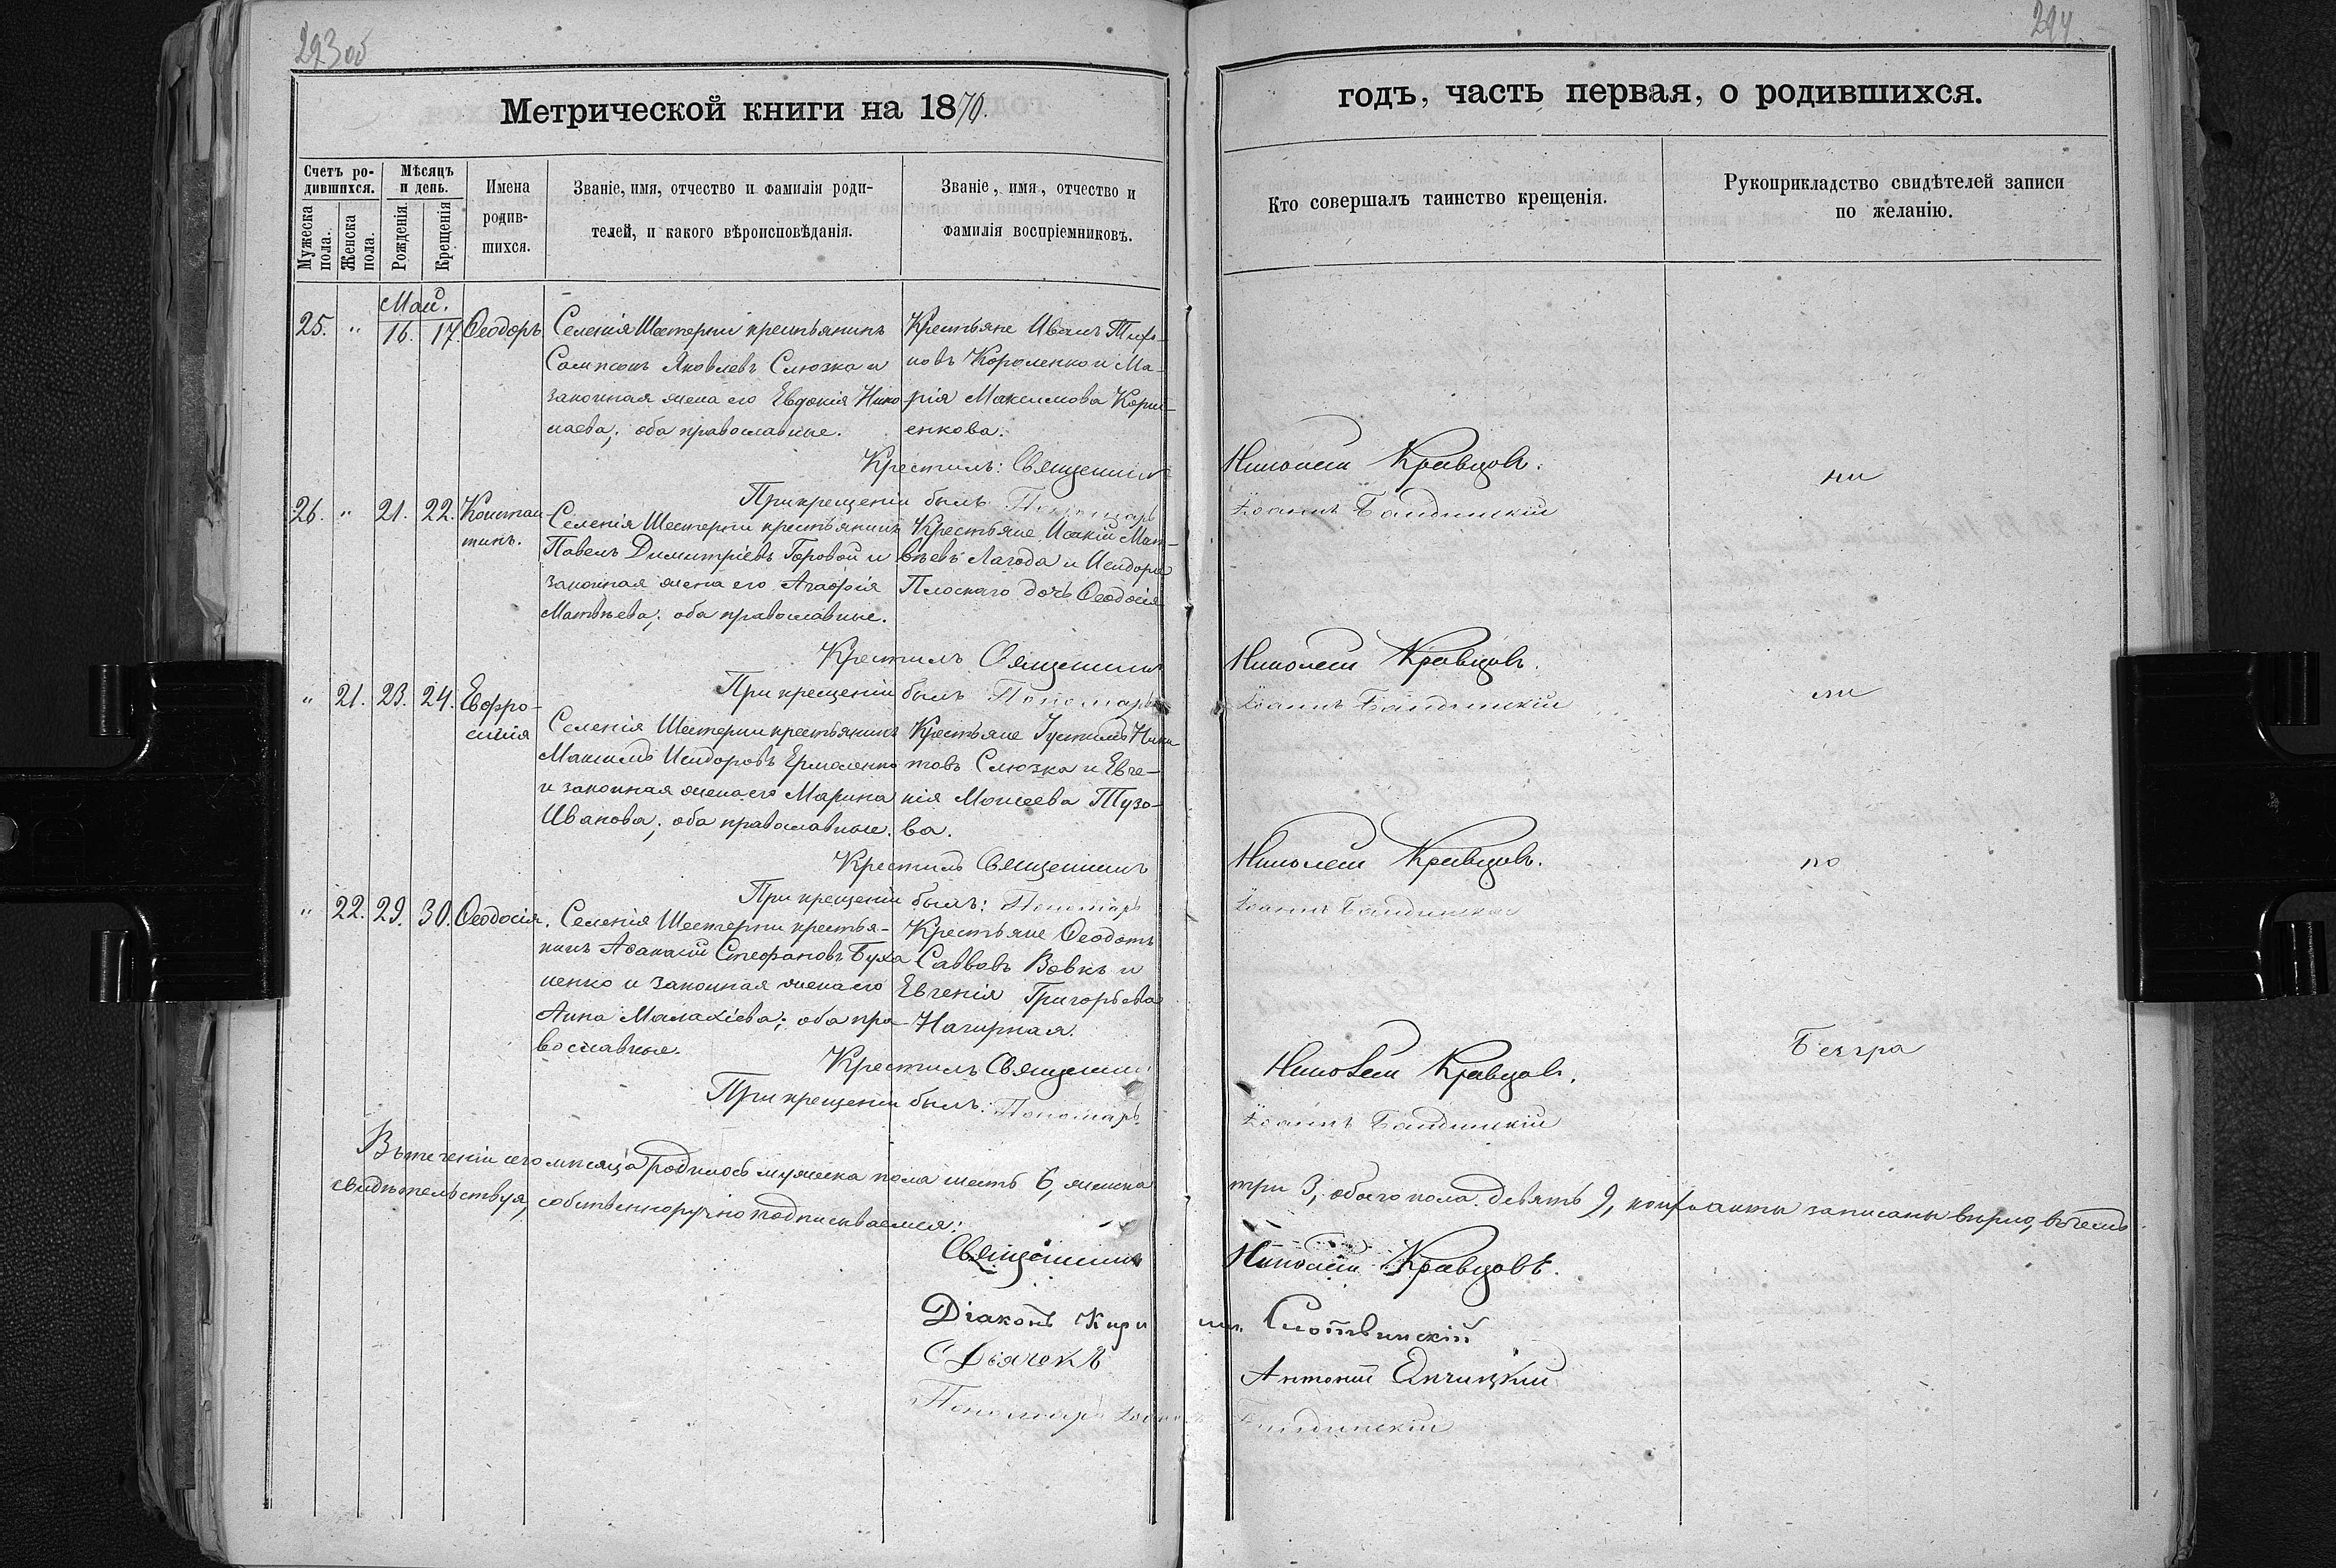 293 об
294
Метрической книги на 1870.
годъ, часть первая, о родившихся.
Счетъ родившихся.
Мужеска пола.
Женска пола.
Мѣсяцъ и день.
Рожденія.
Крещенія
Имена родив-
шихся.
Званіе, имя, отчество и фамилія роди-
телей, и какого вѣроисповѣданія.
Званіе, имя, отчество и
фамилія воспріемниковъ.
Кто совершалъ таинство крещенія.
Рукоприкладство свидѣтелей записи
по желанію.
Май.
25. " 16. 17. Ѳеодоръ
Селенія Шестерни крестьянинъ
Сампсонъ Яковлевъ Слюзка и
законная жена его Евдокія Нико-
лаева; оба православные.
Крестьяне Иванъ
новъ Короленко и Ма-
рія Максимова
енкова.
Крестилъ: Священникъ Николай Кравцовъ.
При крещеніи былъ Пономарь Іоаннъ
26. " 21. 22. Констан-
тинъ.
Селенія Шестерни крестьянинъ
Павелъ Димитріевъ Горовой и
законная жена его Агафія
Матвѣева; оба православные.
Крестьяне Исакій Мат-
вѣевъ Лагода и Исидора
Плоскаго дочь Ѳеодосія
Крестилъ Священникъ Николай Кравцовъ.
При крещеніи былъ Пономарь Іоаннъ
" 21. 23. 24. Евфро-
синія
Селенія Шестерни крестьянинъ
Максимъ Исидоровъ Ермоленко
и законная жена его Марина
Иванова; оба православные.
Крестьяне Іустинъ Ники-
товъ Слюзка и Евге-
нія Моисеева Тузо-
ва.
Крестилъ Священникъ Николай Кравцовъ.
При крещеніи былъ: Пономарь Іоаннъ
" 22. 29. 30. Ѳеодосія.
Селенія Шестерни крестья-
нинъ Аѳанасій Стефановъ Буха
ненко и законная жена его
Анна Малахіева; оба пра-
вославные.
Крестьяне Ѳеодотъ
Саввовъ Вовкъ и
Евгенія Григорьева
Нагирная.
Крестилъ Священникъ Николай Кравцовъ.
При крещеніи былъ: Пономарь Іоаннъ
Въ теченіи сего мѣсяца родилось мужеска пола шесть 6, женска три 3, обоего пола девять 9, акты записаны вѣрно, въ чемъ
свидѣтельствуя, собственноручно подписываемся:
Священникъ Николай Кравцовъ.
Діаконъ Кирилъ Слотвинскій
Дьячекъ Антоній
Пономарь Іоаннъ